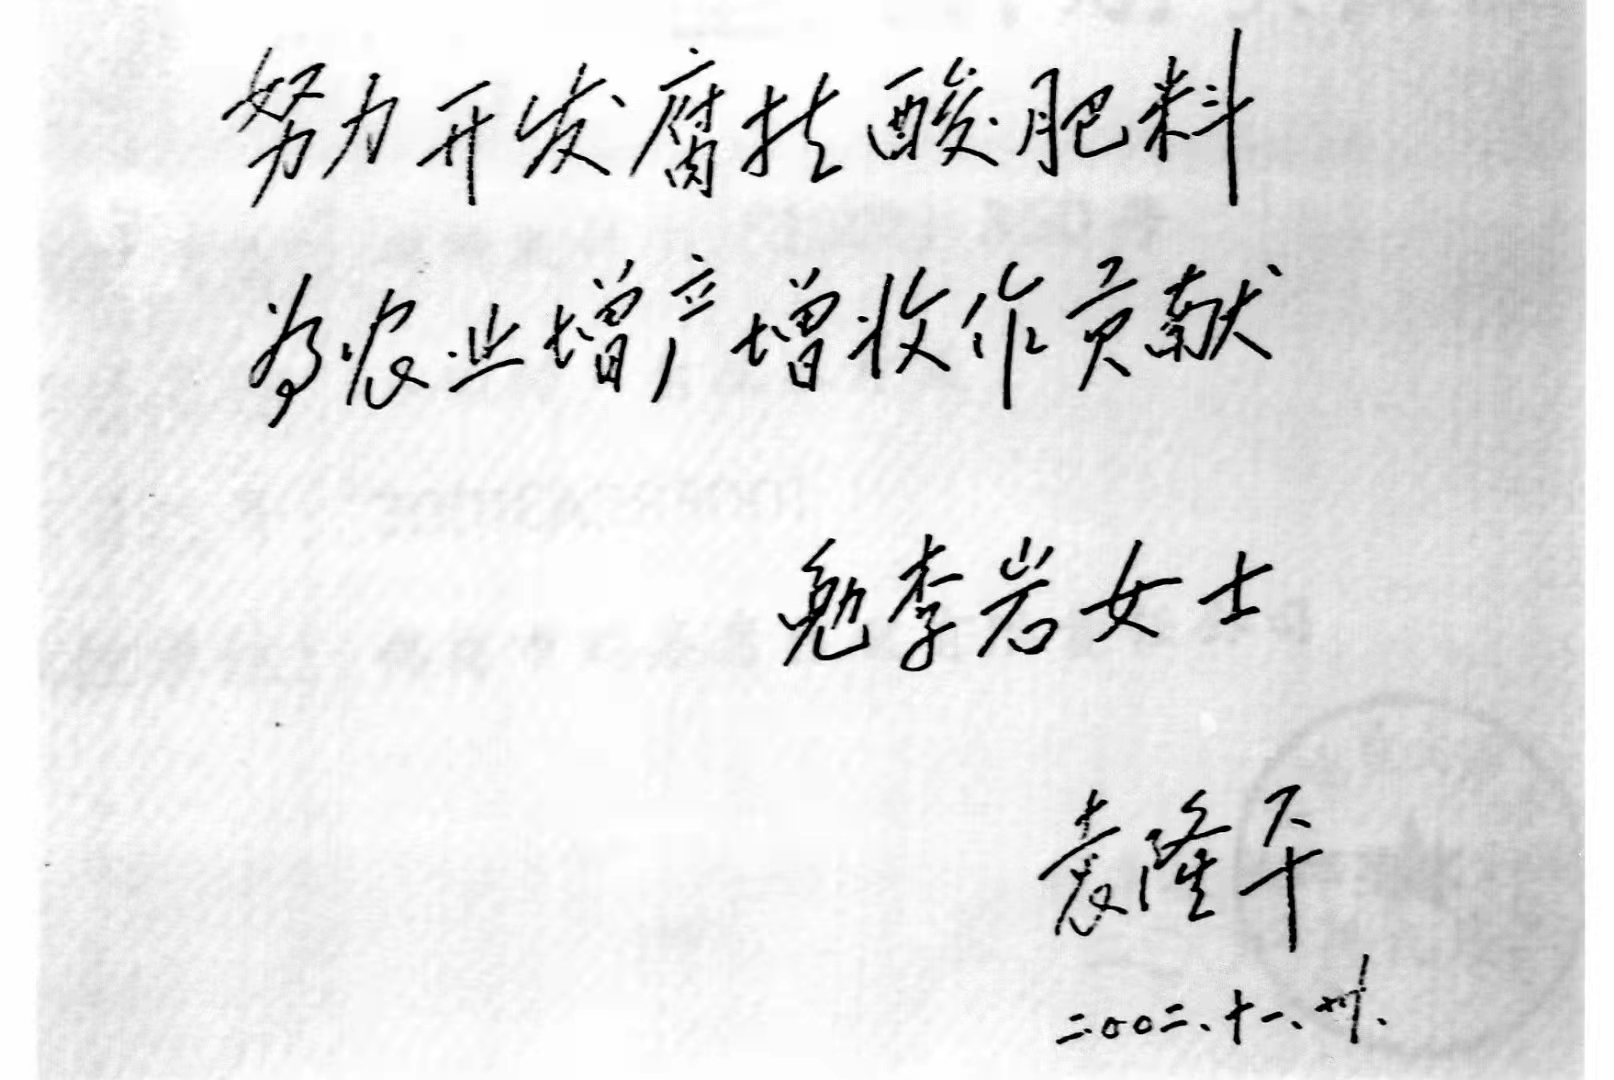 努力开发腐植酸肥料
为农业增产增收作贡献
勉李岩女士
袁隆平
二〇〇二、十一、卅.